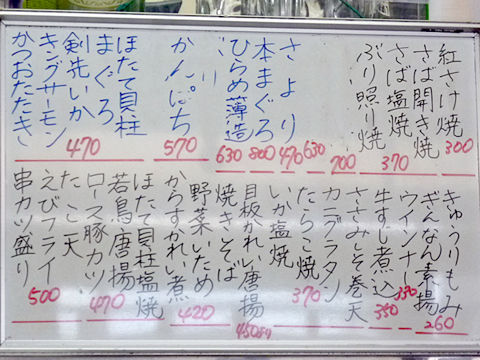 紅さけ焼
さば開き焼
さば塩焼
ぶり照り焼
300
370
700
さより
本まぐろ
ひらめ薄造
かんぱち
630
470
800
630
570
ほたて貝柱
まぐろ
剣先いか
キングサーモン
かつおたたき
470
きゅうりもみ
ぎんなん素揚
ウインナー
牛すじ煮込
ささみしそ巻天
カニグラタン
たらこ焼
いか塩焼
260
330
350
370
目板かれい唐揚
焼きそば
野菜いため
からすかれい煮
450
420
ほたて貝柱塩焼
若鳥唐揚
ロース豚カツ
たこ天
えびフライ
串カツ盛り
470
500